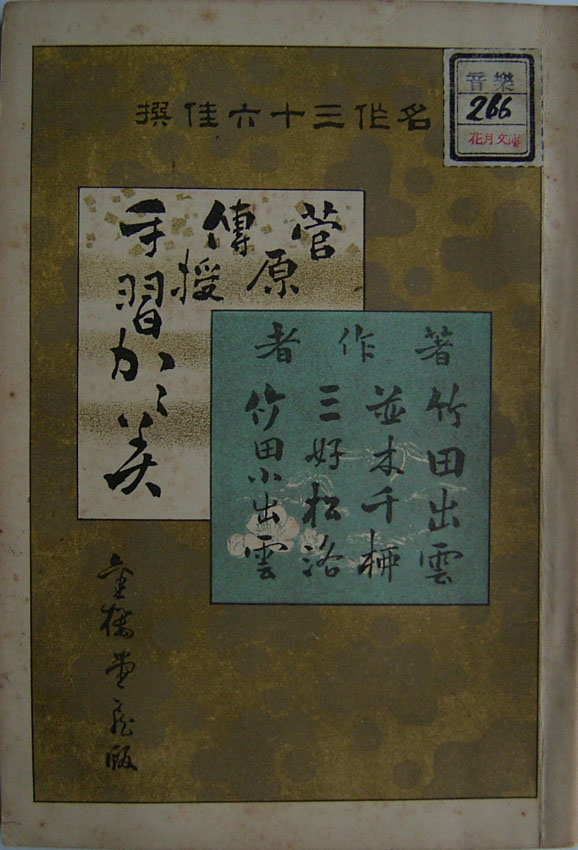 名作三十六佳撰
音樂
266
花月文庫
菅原
傳授
手習かゞ美
著作者
竹田出雲
並木千柳
三好松洛
竹田小出雲
金櫻堂蔵版